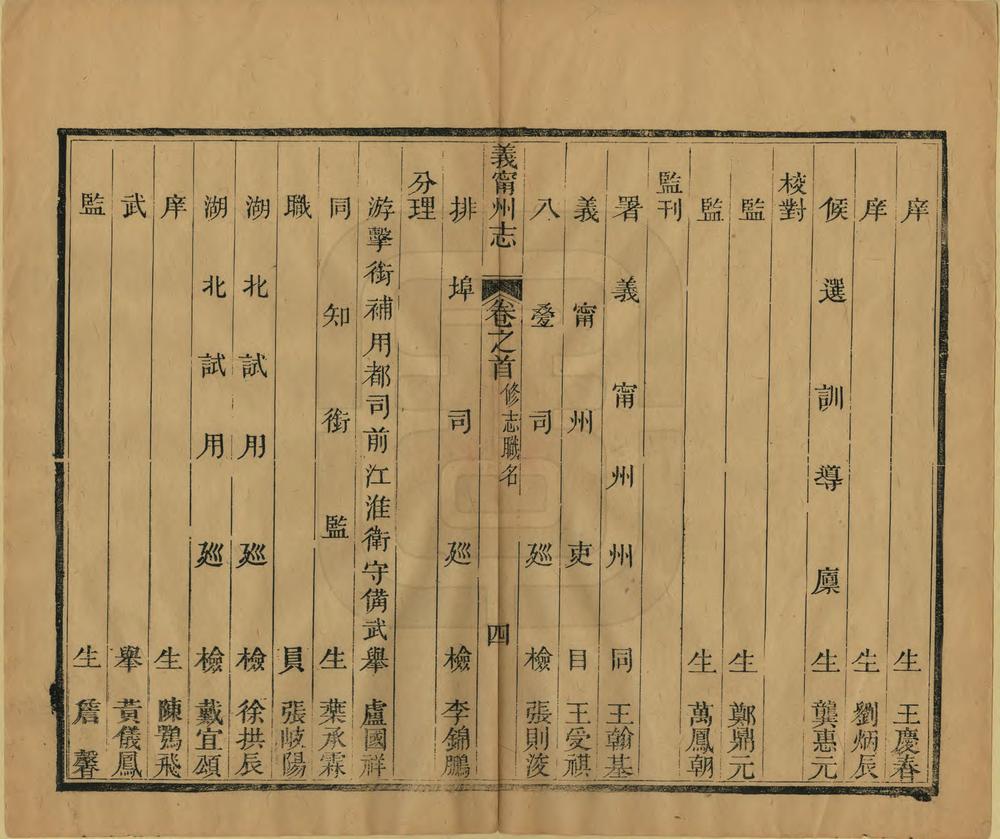 庠生王慶春
庠生劉炳辰
候選訓導廩生龔惠元
校對
監生鄭鼎元
監生萬鳳朝
監刊
署義甯州州同王翰基
義甯州吏目王受祺
八疊司廵檢張則浚
義甯州志 卷之首 修志職名 四
排埠司廵檢李錦鵬
分理
游擊銜補用都司前江淮衛守備武舉盧國祥
同知銜監生葉承霖
職員張岐陽
湖北試用廵檢徐拱辰
湖北試用廵檢戴宜頌
庠生陳鶚飛
武舉黃儀鳳
監生詹馨